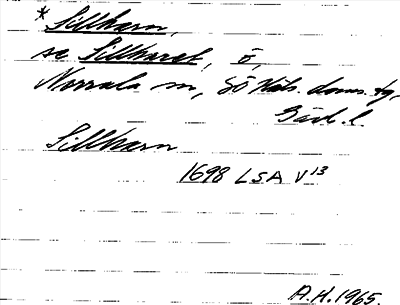 * Sillharn,
se Sillharet, ö,
Norrala sn, SÖ Häls. doms. tg,
Gävl. l.
Sillharn
1698 LSA V 13
A.H. 1965.